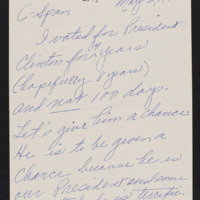 May 2,
C-Span
I voted for President
Clinton for "years
(hopefully 8 years)
and not 100 days.
Let's give him a chance
He is to be given a
chance because he is
our President and some
terrific.